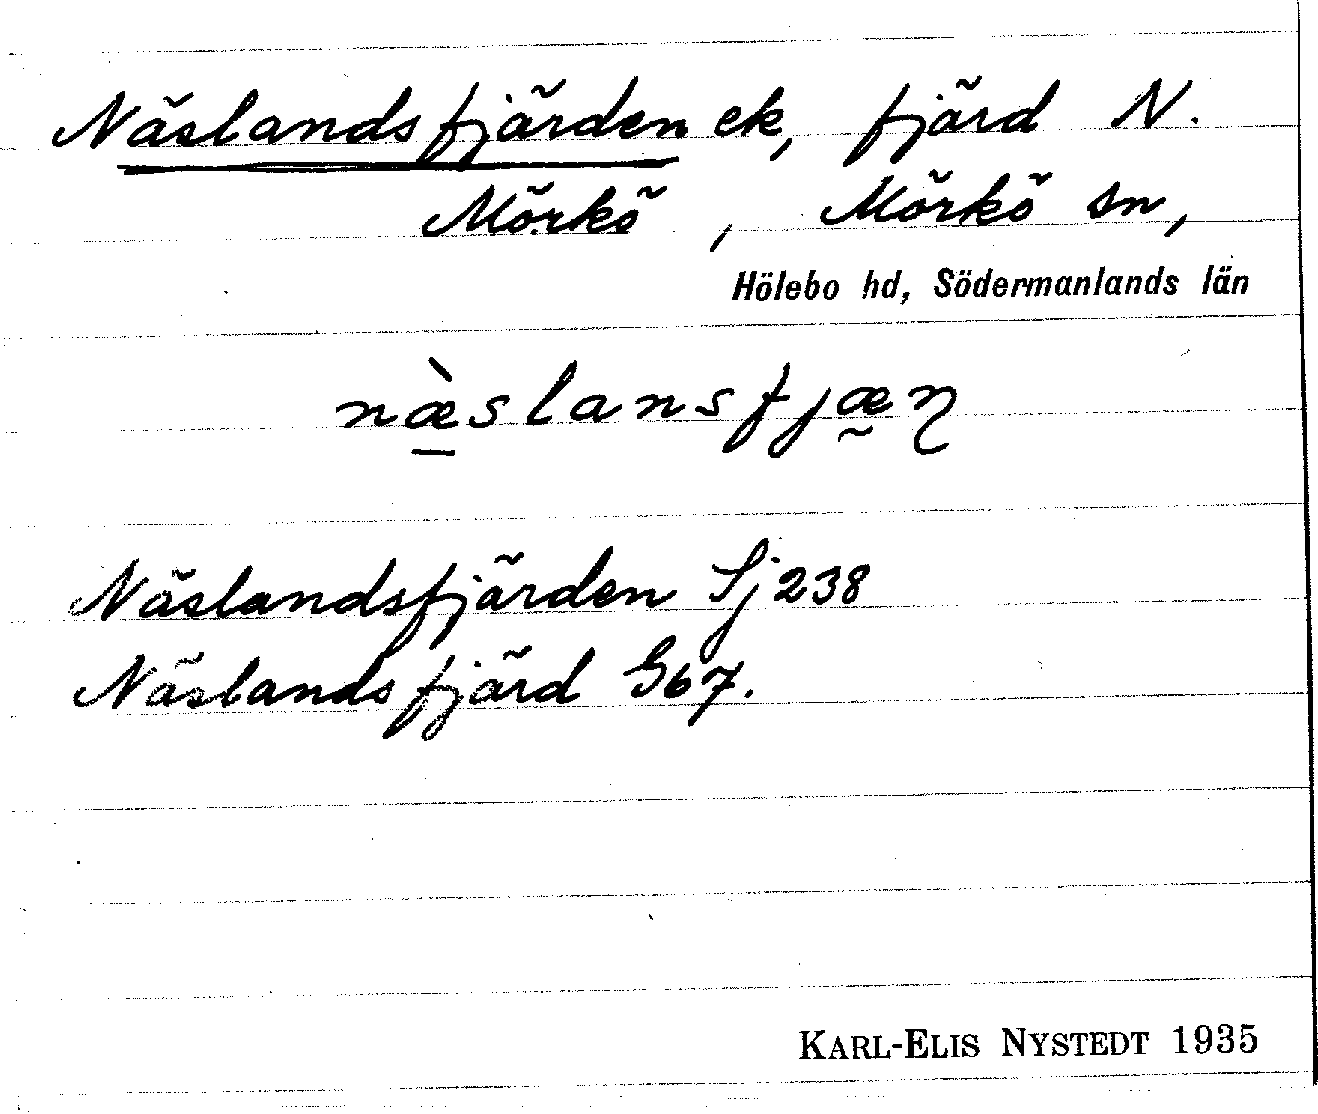 Näslandsfjärden ek, fjärd N.
Mörkö, Mörkö sn,
Hölebo hd, Södermanlands län
næ̠̀slansfjæ̰ɳ
Näslandsfjärden Sj 238
Näslandsfjärd G67.
KARL-ELIS NYSTEDT 1935